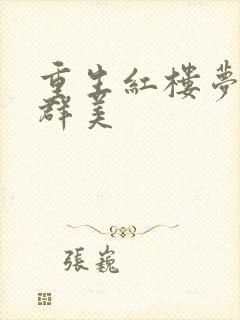 重生紅樓夢
群美
張巍